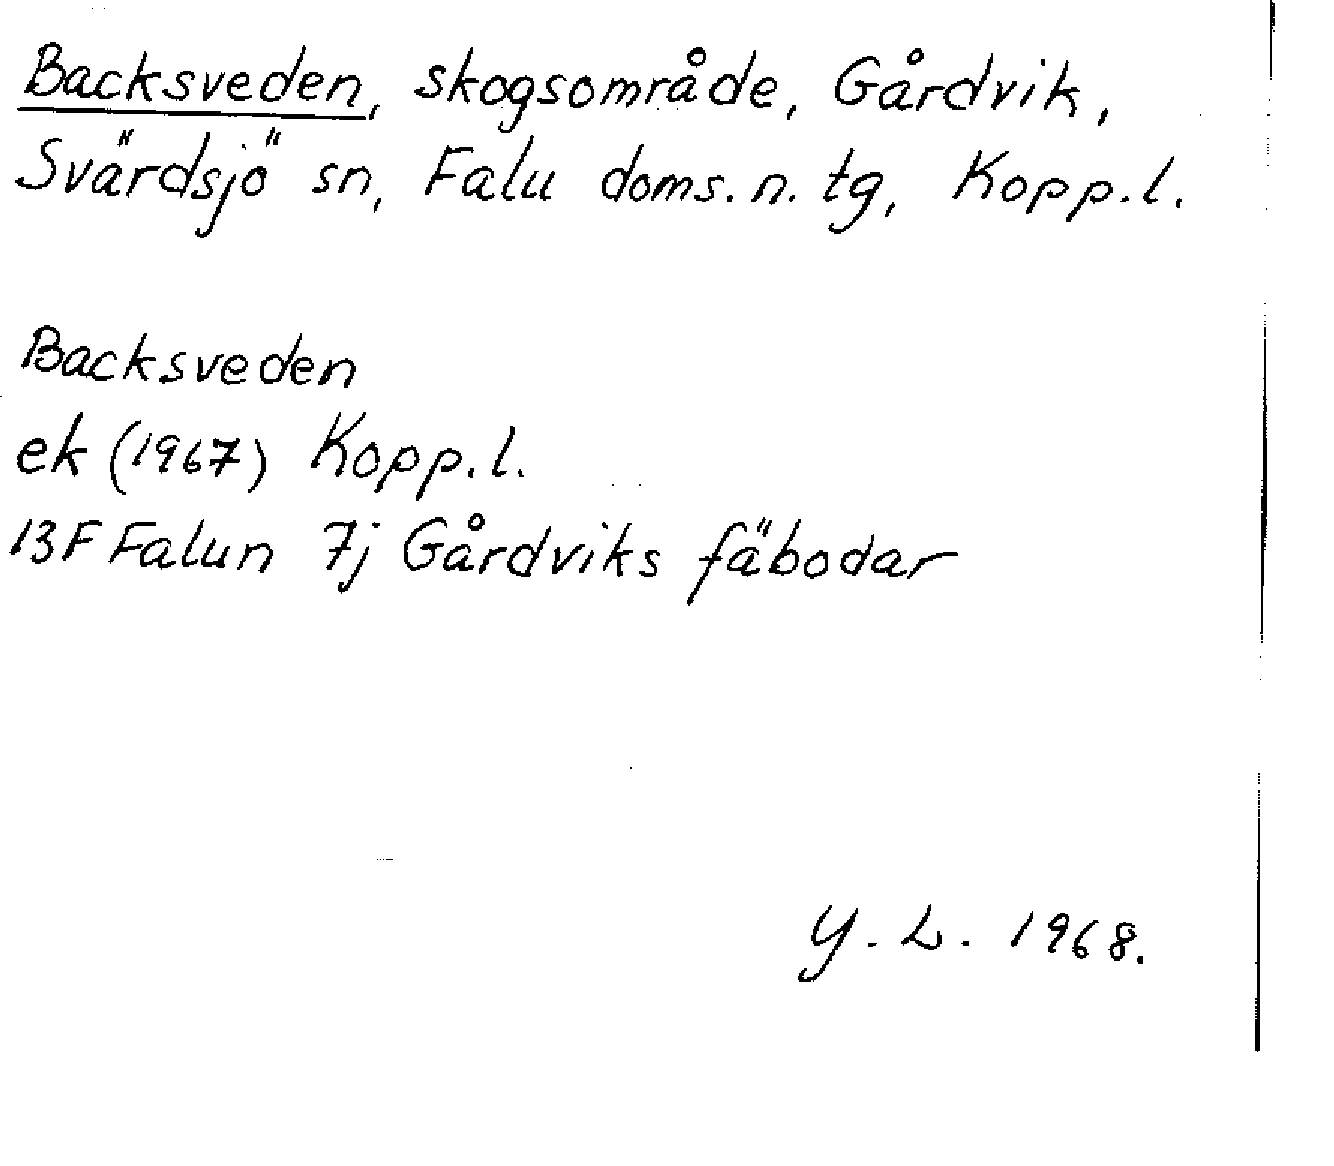 Backsveden, skogsområde, Gårdvik,
Svärdsjö sn, Falu doms. n. tg, Kopp. l.
Backsveden
ek (1967) Kopp. l.
13F Falun 7j Gårdviks fäbodar
Y. L. 1968.